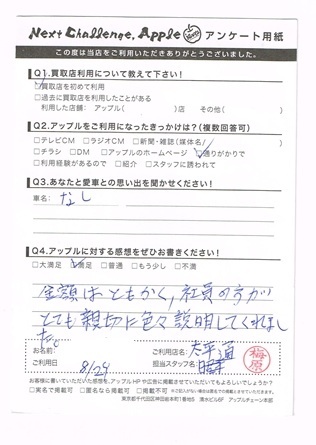 Next Challenge, Apple アンケート用紙
この度は当店をご利用いただきありがとうございました。
Q1.買取店利用について教えて下さい!
☑買取店を初めて利用
□過去に買取店を利用したことがある
利用した店舗: アップル( )店 その他( )
Q2.アップルをご利用になったきっかけは?(複数回答可)
□テレビCM □ラジオCM □新聞・雑誌(媒体名/ ) 
□チラシ □DM □アップルのホームページ ☑通りがかりで
□利用経験があるので □紹介 □スタッフに誘われて
Q3.あなたと愛車との思い出を聞かせください!
車名: なし
Q4.アップルに対する感想をぜひお書きください!
□大満足 ☑満足 □普通 □もう少し □不満
金額はともかく,社員の方が
とても親切に色々説明してくれまし
た。
お名前: ご利用店名: 太平通
ご利用日 8/29 担当スタッフ名 梅原
お客様に書いていただいた感想を、アップルHPや広告に掲載させていただいてもよろしいでしょうか?
□実名で掲載可 □匿名なら掲載可 □不可
東京都千代田区岸田町1番地5 清水ビル6F アップルチェーン本部